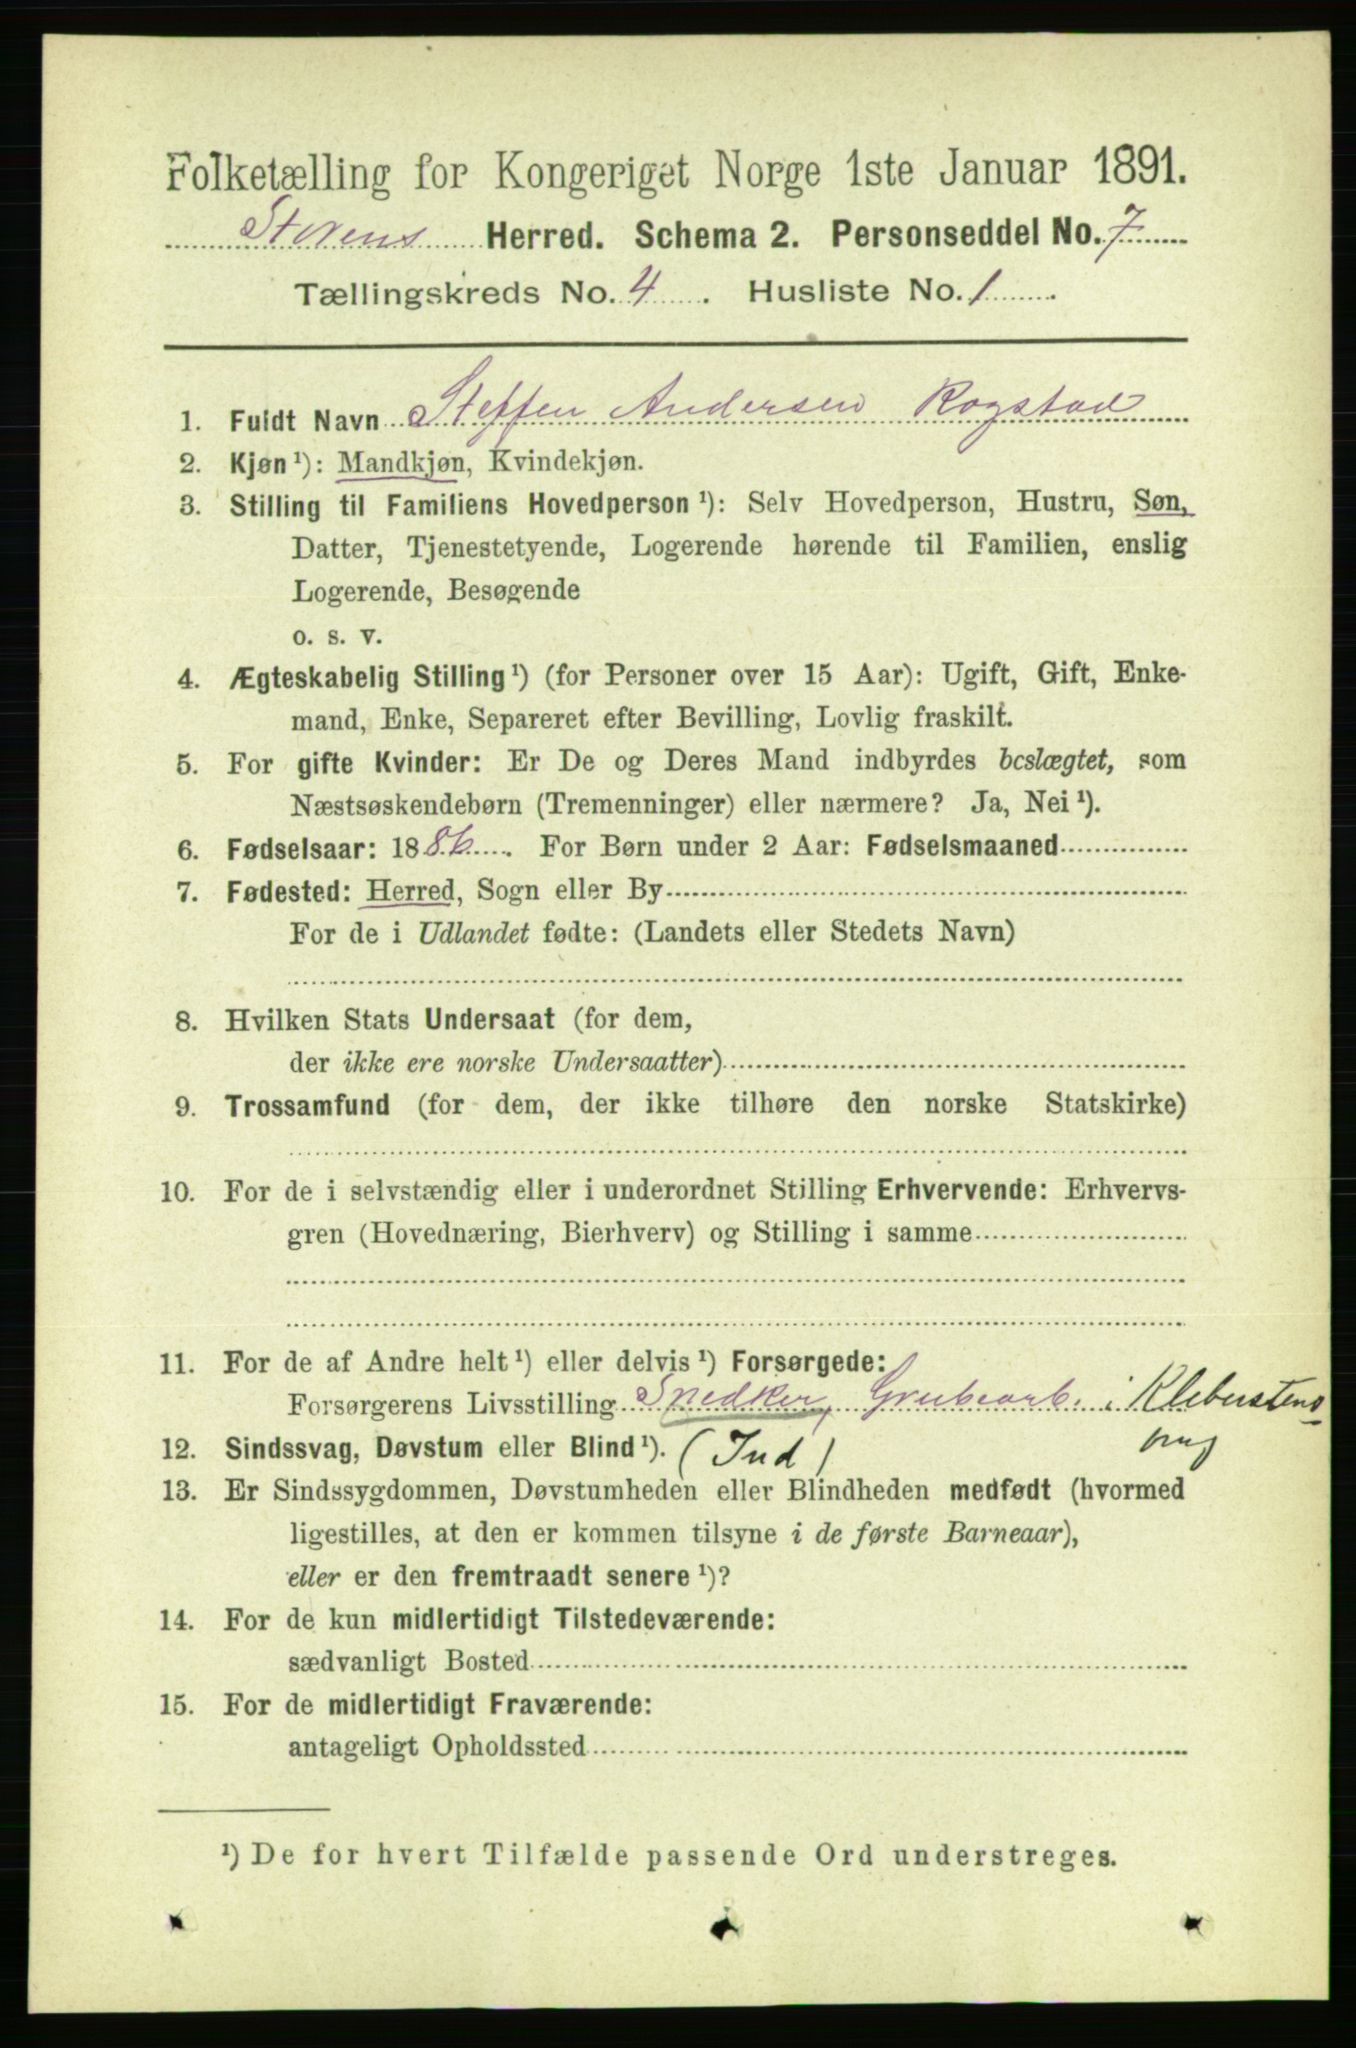 Folketælling for Kongeriget Norge 1ste Januar 1891.
Størens Herred. Schema 2. Personseddel No. 7
Tællingskreds No. 4. Husliste No. 1.
1. Fuldt Navn Steffen Andersen Rogstad
2. Kjøn ¹): Mandkjøn, Kvindekjøn.
3. Stilling til Familiens Hovedperson ¹): Selv Hovedperson, Hustru, Søn,
Datter, Tjenestetyende, Logerende hørende til Familien, enslig
Logerende, Besøgende
o. s. v.
4. Ægteskabelig Stilling ¹) (for Personer over 15 Aar): Ugift, Gift, Enke-
mand, Enke, Separeret efter Bevilling, Lovlig fraskilt.
5. For gifte Kvinder: Er De og Deres Mand indbyrdes beslægtet, som
Næstsøskendebørn (Tremenninger) eller nærmere? Ja, Nei ¹).
6. Fødselsaar: 1886. For Børn under 2 Aar: Fødselsmaaned
7. Fødested: Herred, Sogn eller By
For de i Udlandet fødte: (Landets eller Stedets Navn)
8. Hvilken Stats Undersaat (for dem,
der ikke ere norske Undersaatter)
9. Trossamfund (for dem, der ikke tilhøre den norske Statskirke)
10. For de i selvstændig eller i underordnet Stilling Erhvervende: Erhvervs-
gren (Hovednæring, Bierhverv) og Stilling i samme
11. For de af Andre helt ¹) eller delvis ¹) Forsørgede:
Forsørgerens Livsstilling Snedker, Grubearb. i Kleberstens-
brug
12. Sindssvag, Døvstum eller Blind ¹). (Ind)
13. Er Sindssygdommen, Døvstumheden eller Blindheden medfødt (hvormed
ligestilles, at den er kommen tilsyne i de første Barneaar),
eller er den fremtraadt senere ¹)?
14. For de kun midlertidigt Tilstedeværende:
sædvanligt Bosted
15. For de midlertidigt Fraværende:
antageligt Opholdssted
¹) De for hvert Tilfælde passende Ord understreges.